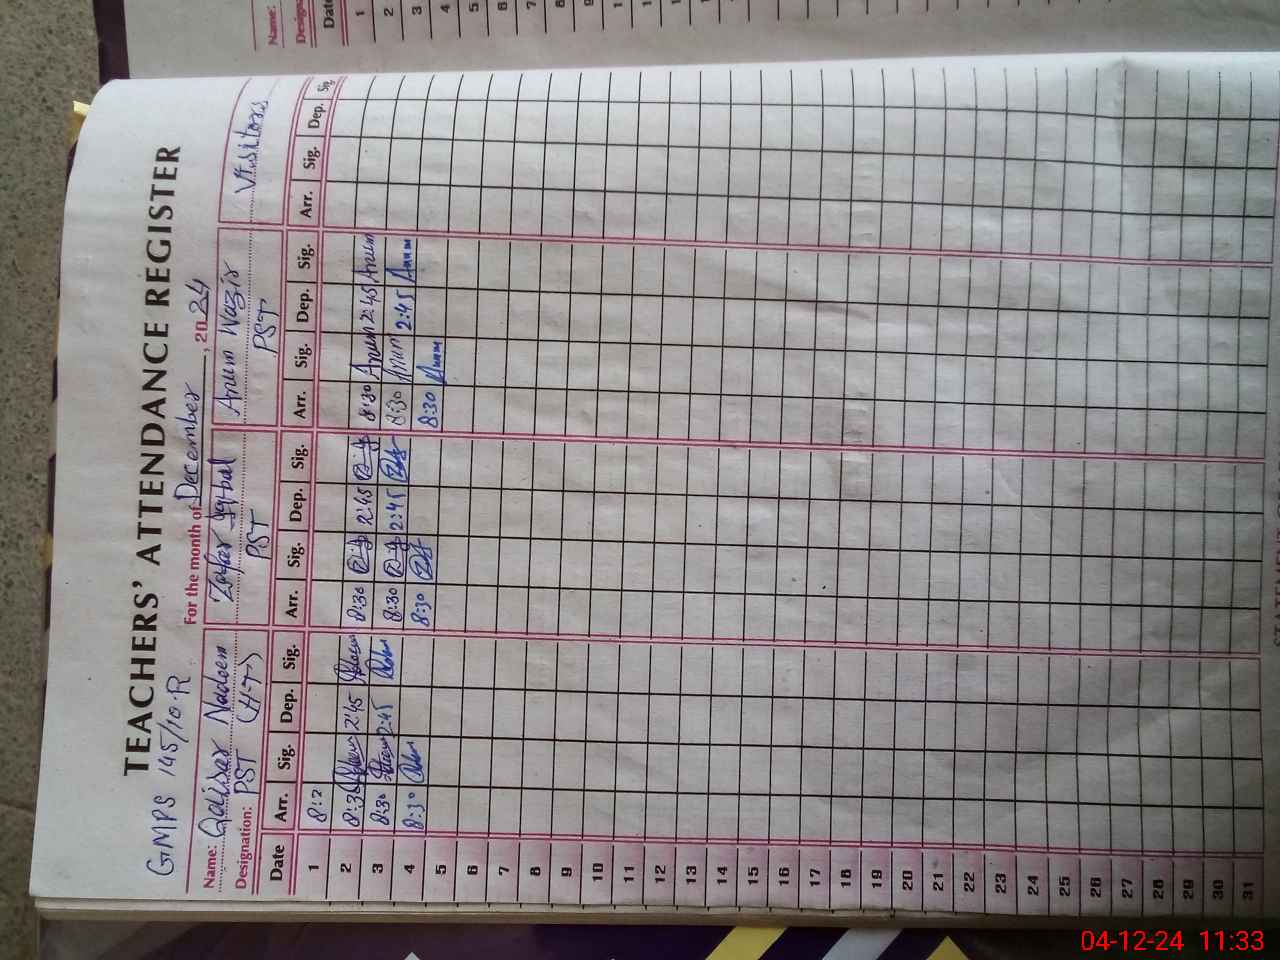 Name:
Designa
Date
1
2
3
4
5
6
7
8
9
TEACHERS' ATTENDANCE REGISTER
GMPS 145/10.R
For the month of December, 2024
Name: Qaisar Nadeem Zafar Iqbal Anum Wazir Visitors
Designation: PST (H-T) PST PST
Date Arr. Sig. Dep. Sig. Arr. Sig. Dep. Sig. Arr. Sig. Dep. Sig. Arr. Sig. Dep. Sig
1 8:2
2 8:30 2:45 8:30 2:45 8:30 Anum 2:45 Anum
3 8:30 2:45 8:30 2:45 8:30 Anum 2:45 Anum
4 8:30 8:30 8:30 Anum
5
6
7
8
9
10
11
12
13
14
15
16
17
18
19
20
21
22
23
24
25
26
27
28
29
30
31
04-12-24 11:33